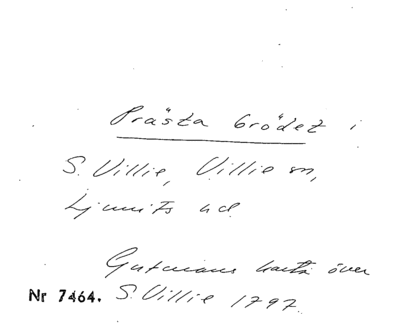 Prästa brödet i
S. Villie, Villie sn,
Ljunits hd
Gutmans karta över
Nr 7464. S. Villie 1797.